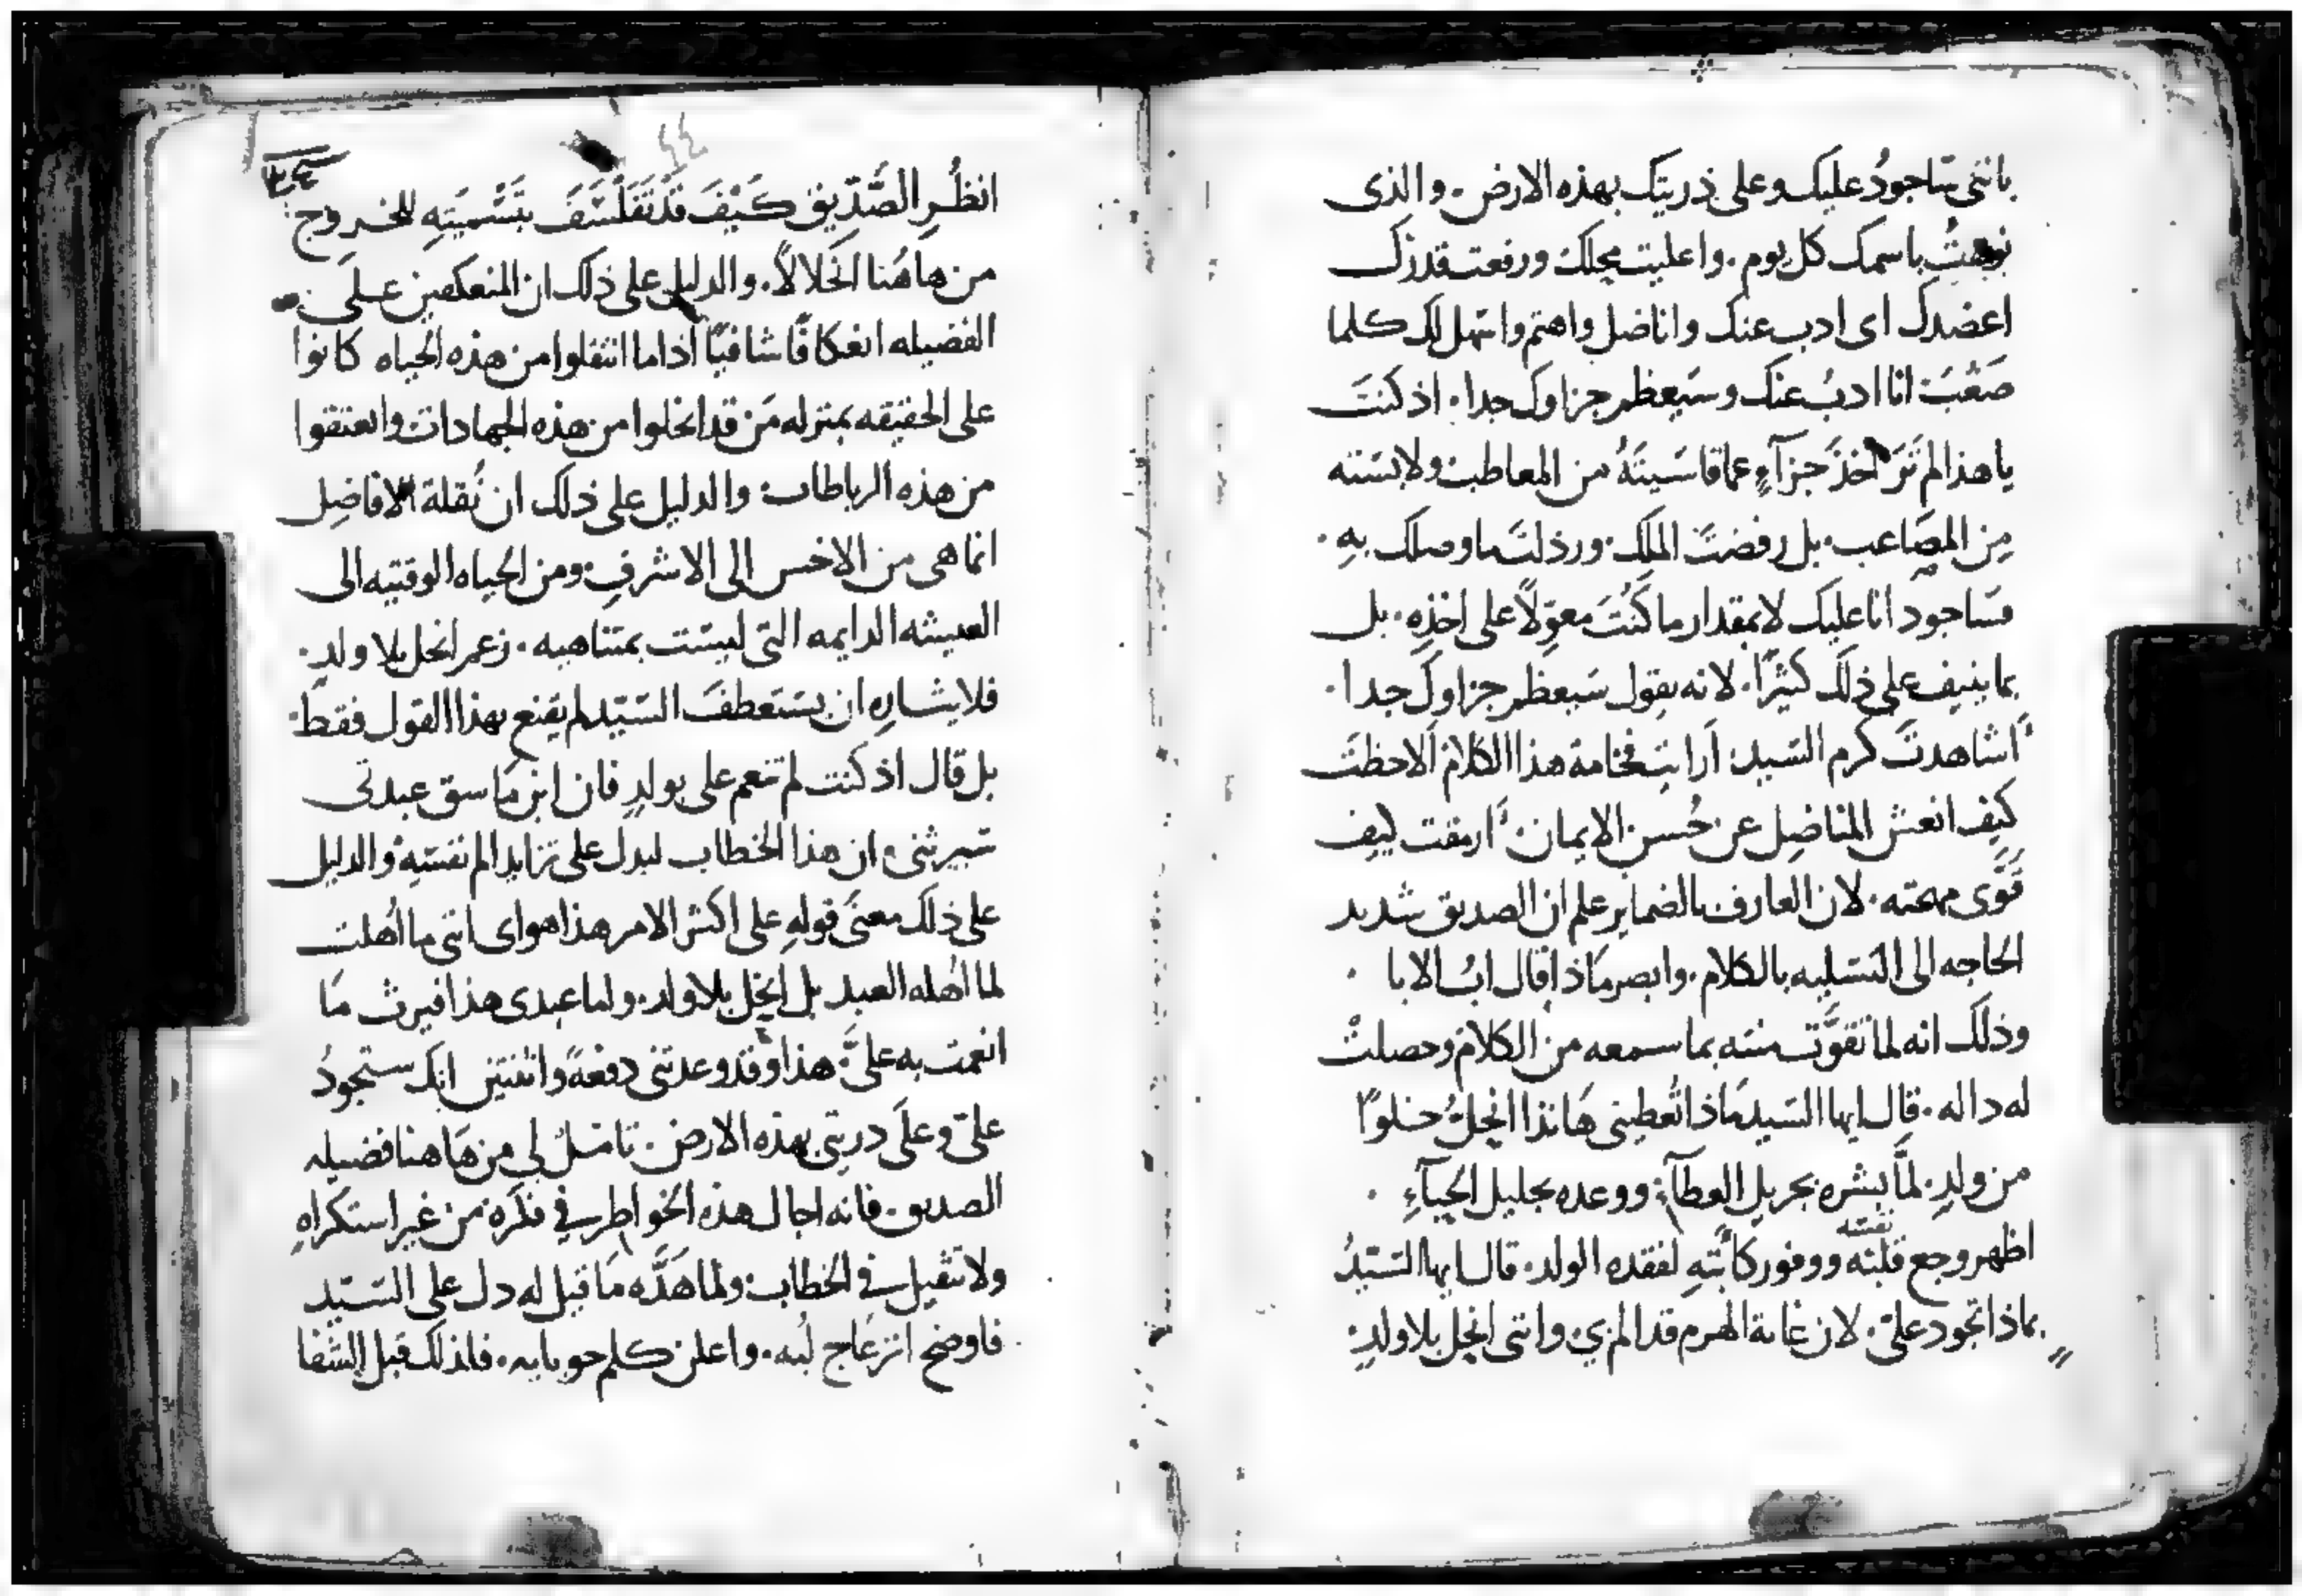 بانني ساجودُ عليك وعلى ذريتك بهذه الارض. والذى
نوهتُ باسمك كل يوم. واعليت محلك ورفعت قدرك
اعضدك اى ادب عنك واناضل واهتم واسهل لك كلما
صَعُبَ انا ادبُ عنك وسَيعظم جزاوك جدا. اذ كنتَ
يا هذا لم تَرَ اخذَ جزآءٍ عما قاسَيتَهُ من المعاطب ولابسته
مِن المصَاعب. بل رفضتَ الملِك. ورذلتَ ما وصلك به.
فسَاجود انا عليك لا بمقدار ما كنُتَ معوِّلاً على اخذِهِ. بل
بما ينيف على ذلك كثيرًا. لانه يقول سَيعظم جزاوك جدا.
اشاهدتَ كرم السَيد. اَرايت فخامة هذا الكلام اَلاحظتَ
كيف انعش المناضِل عن حُسن الايمان. اَرمقت كيف
قَوَّى مهجته. لان العارف بالضماير علم ان الصديق شديد
الحاجه الى التسَليه بالكلام. وابصر مَاذا قال ابُ الابا.
وذلك انه لما تقوَّت منته بما سمعه من الكلام وحصلتْ
له داله. قال ايها السَيد مَاذا تُعطينى هَانذا انحلُّ خلوًا
من ولدٍ. لمَّا بشره بجزيل العطآءِ. ووعده بجليل الحبآءِ.
اظهر وجع قلبه نفسَه ووفور كأبَتِهِ لفقده الولد. قال ايها السَيّدُ
بماذا تجود علىّ. لان غاية الهرم قد المَّ بي. واننى انحل بلا ولدٍ.
٣٤
٤٤
انظُرِ الصِّدِّيق كَيْفَ قَدْ تَفَلْسَفَ بتَسْميَتِهِ للخروج
من هاهُنا انحَلالاً. والدليل على ذلك ان المنعكفين علَى
الفضيله انعكافًا شافيًا اذا ما انتقلوا من هذه الحياه كانوا
على الحقيقه بمنزله مَن قد انحلوا من هذه الجهادات وانعتقوا
من هذه الرباطات. والدليل على ذلك ان نُقلة الافاضِل
انما هى من الاخس الى الاشرف. ومن الحياه الوقتيه الى
العيشه الدايمه التى ليسَت بمتناهيه. زعم انحل بلا ولدٍ.
فلايثارهِ ان يسَتعطفَ السَيّد لم يقنع بهذا القول فقط.
بل قال اذ كنت لم تنعم على بولدٍ فان ابن مَاسق عبدتى
سَيرثنى. ان هذا الخطاب ليدل على تزايد الم نفسَهِ. والدليل
على ذلك معنَى قولهِ على اكثر الامر هذا هو اى اننى ما اُهلت
لما اُهله العبد بل انحل بلا ولد. ولما عبدى هذا فيرث مَا
انعمت به علىَّ. هذا وقد وعدتنى دفعةً واثنتين انك ستجودُ
علىّ وعلَى دريتى بهذه الارض. تامَّلْ لي من هَاهنا فضيله
الصديق. فانه اجال هذه الخواطر في فكرَه من غير استكراهٍ
ولا تثقيل في الخطاب. ولما هَدَّه مَا قيل له دل على السَيّد
فاوضح انزعَاج لُبه. واعلن كلم حوبايه. فلذلك قبل الشفا